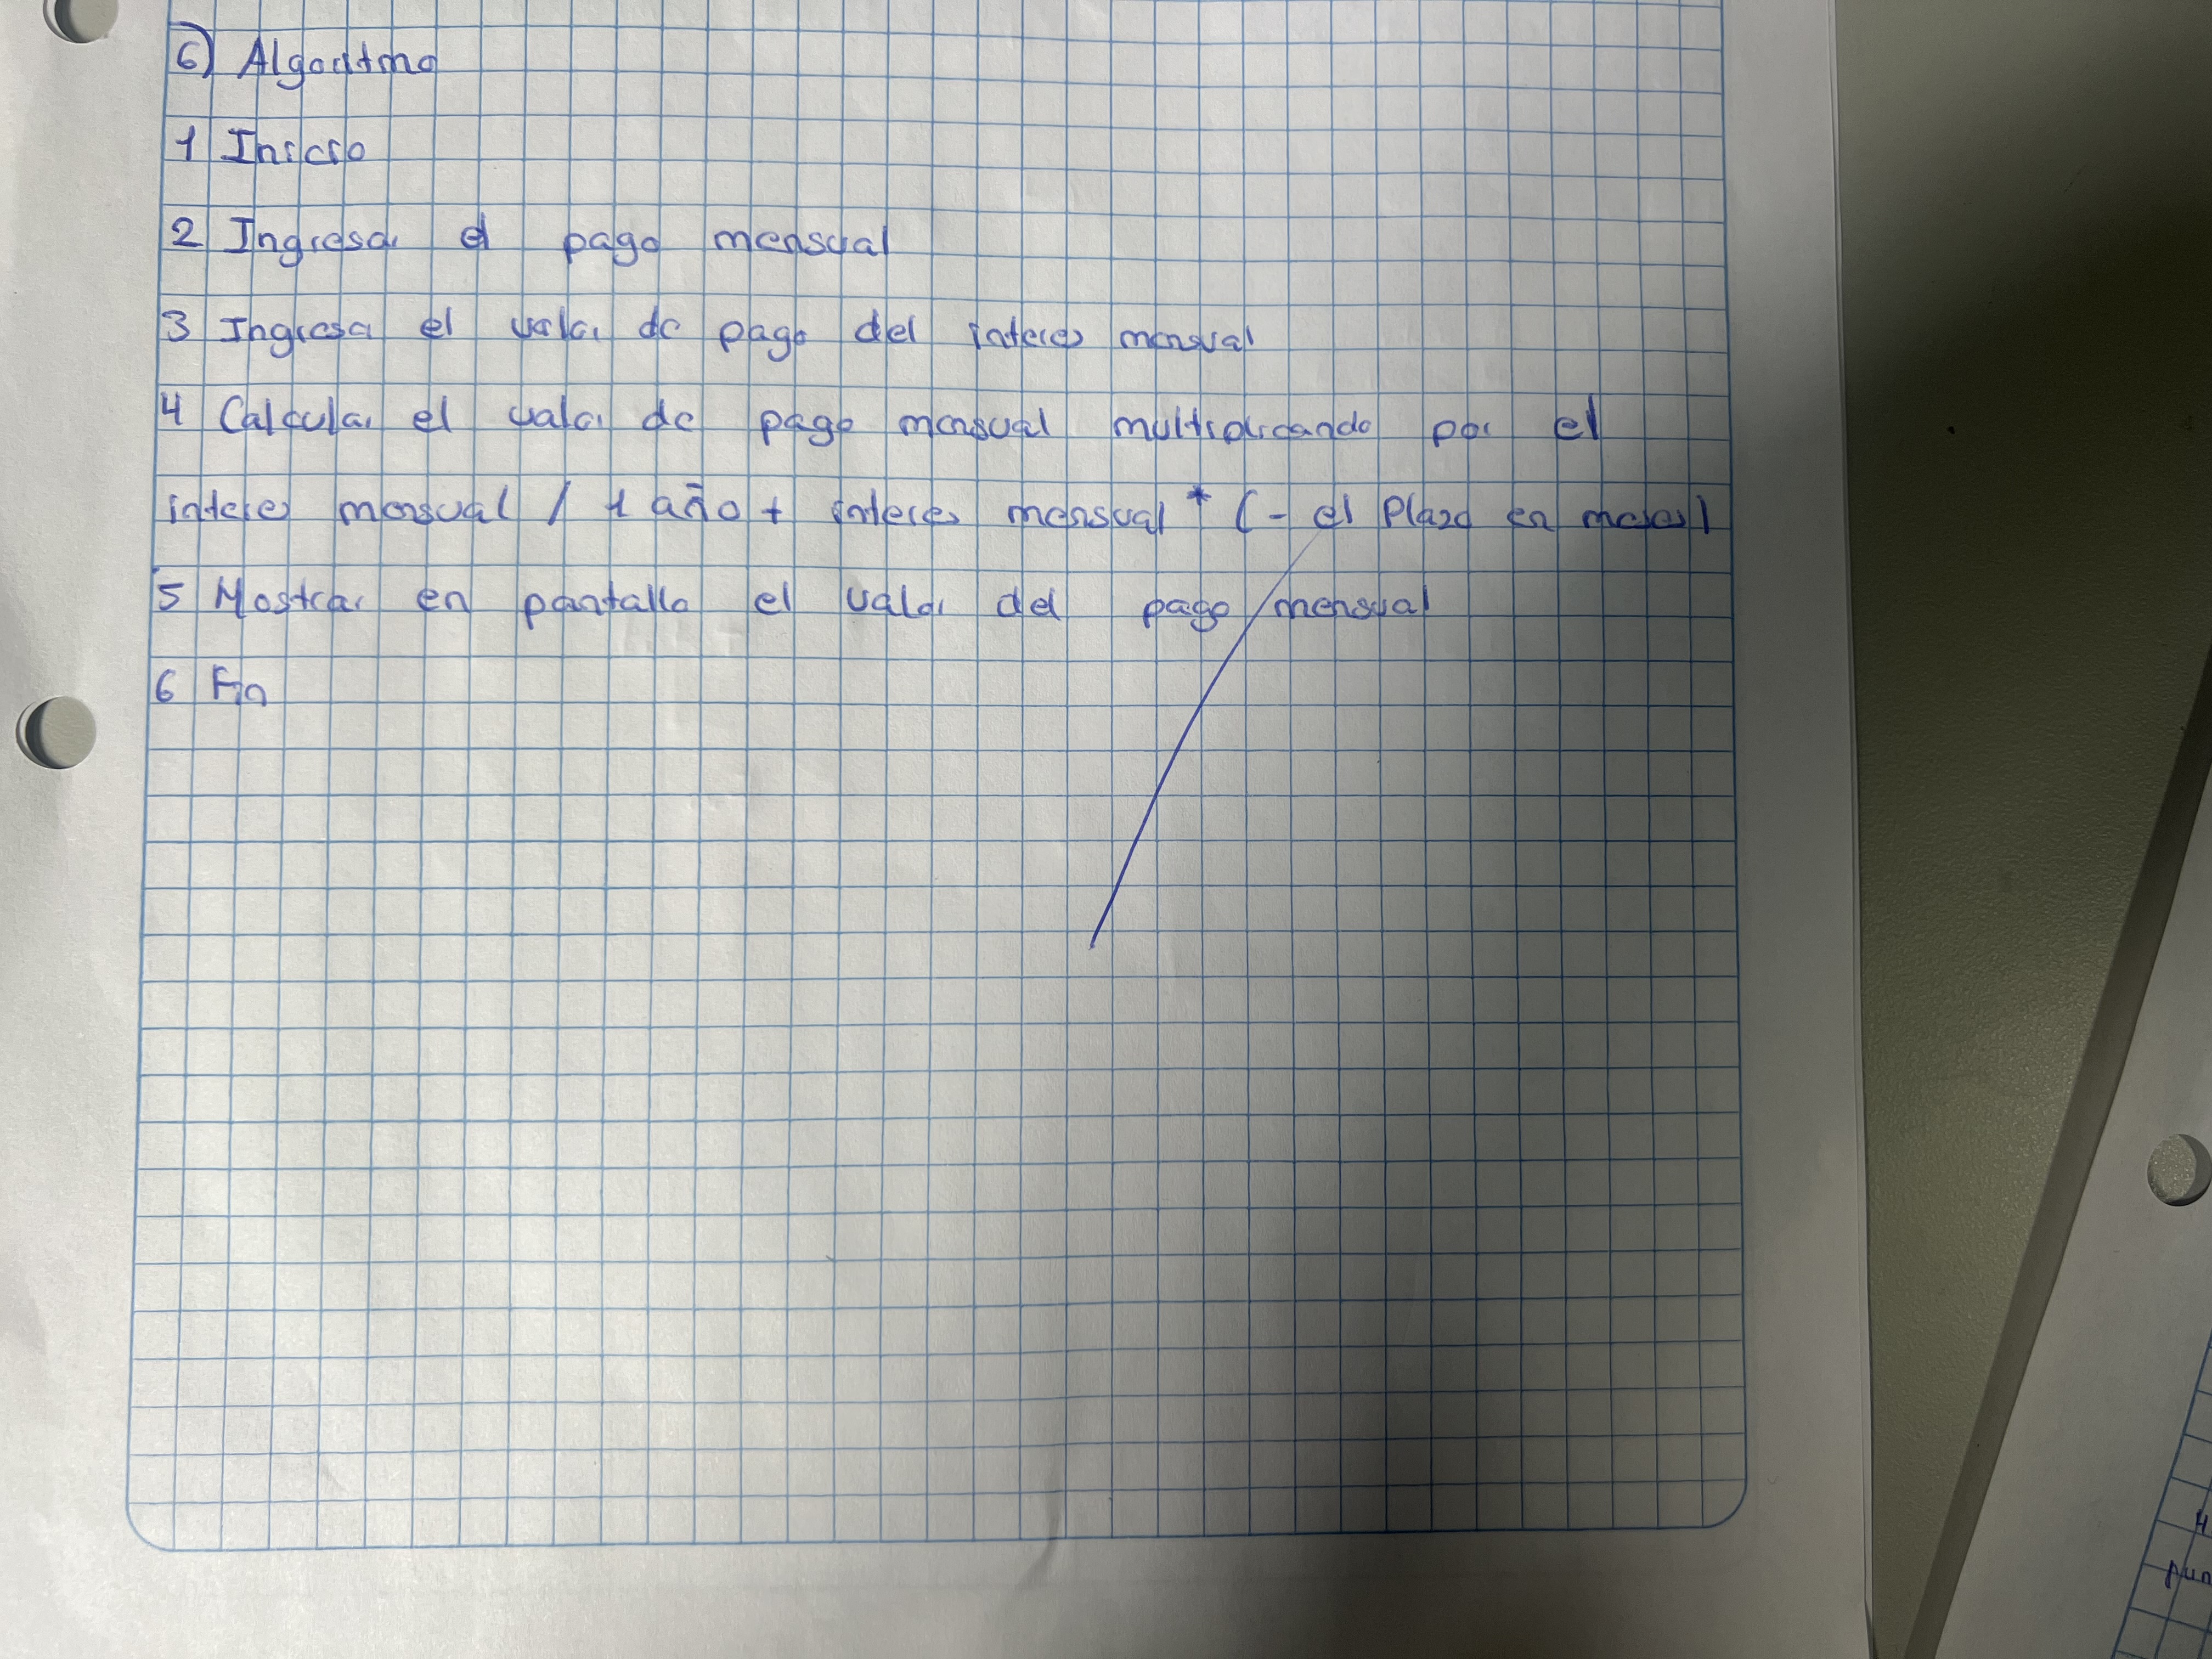 6) Algoritmo
1 Inicio
2 Ingresar el pago mensual
3 Ingresar el valor de pago del interes mensual
4 Calcular el valor de pago mensual multiplicando por el
interes mensual / 1 año + interes mensual * (- el plaso en meses)
5 Mostrar en pantalla el valor del pago mensual
6 Fin